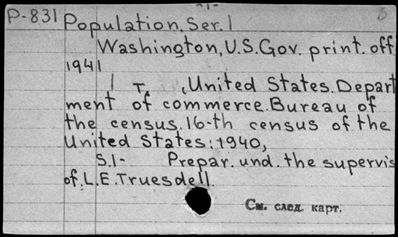 P-831 Population. Ser. 1
Washington, U.S. Gov. print. off
1941
1 T. , United States. Depart
ment of commerce. Bureau of
the census. 16-th census of the
United States: 1940,
S.1- Prepar. und. the supervis
of. L.E. Truesdell.
См. след. карт.